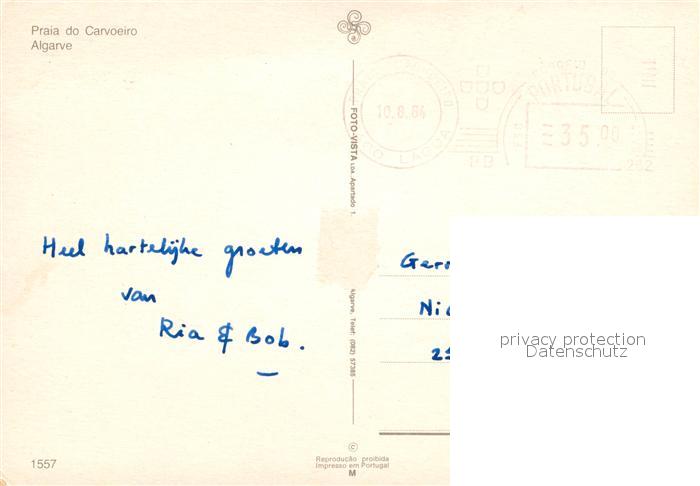 Praia do Carvoeiro
Algarve
10.8.84
LAGOA
PORTUGAL
35.00
PB
FOTO-VISTA LDA. Apartado 1.
Algarve. Telef: (082) 57385
Heel hartelijke groeten
van
Ria & Bob.
privacy protection
Datenschutz
1557
©
Reprodução proibida
Impresso em Portugal
M